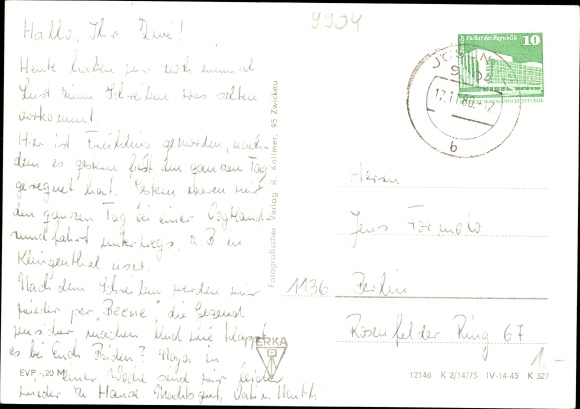 9904
Hallo, Ihr Zwei!
Heute haben wir noch einmal
Lust zum Schreiben, was selten
vorkommt.
Hier ist Frühling geworden, nach-
dem es gestern fast den ganzen Tag
geregnet hat. Gestern waren wir
den ganzen Tag bei einer Vogtland-
rundfahrt unterwegs, z. B in
Klingenthal usw.
Nach dem Schreiben werden wir
wieder per "Beene" die Gegend
unsicher machen. Und wie klappt
es bei Euch Beiden? Naja in
einer Woche sind wir leider
wieder zu Hause. Macht's gut,
Fotografischer Verlag K. Kallmer, 95 Zwickau
Palast der Republik
10
17.11.80.-12
b
Herrn
Jens
1136 Berlin
Rosenfelder Ring 67
1.-
ERKA
EVP -,20 M
12146 K 2/14/75 IV-14-45 K 327